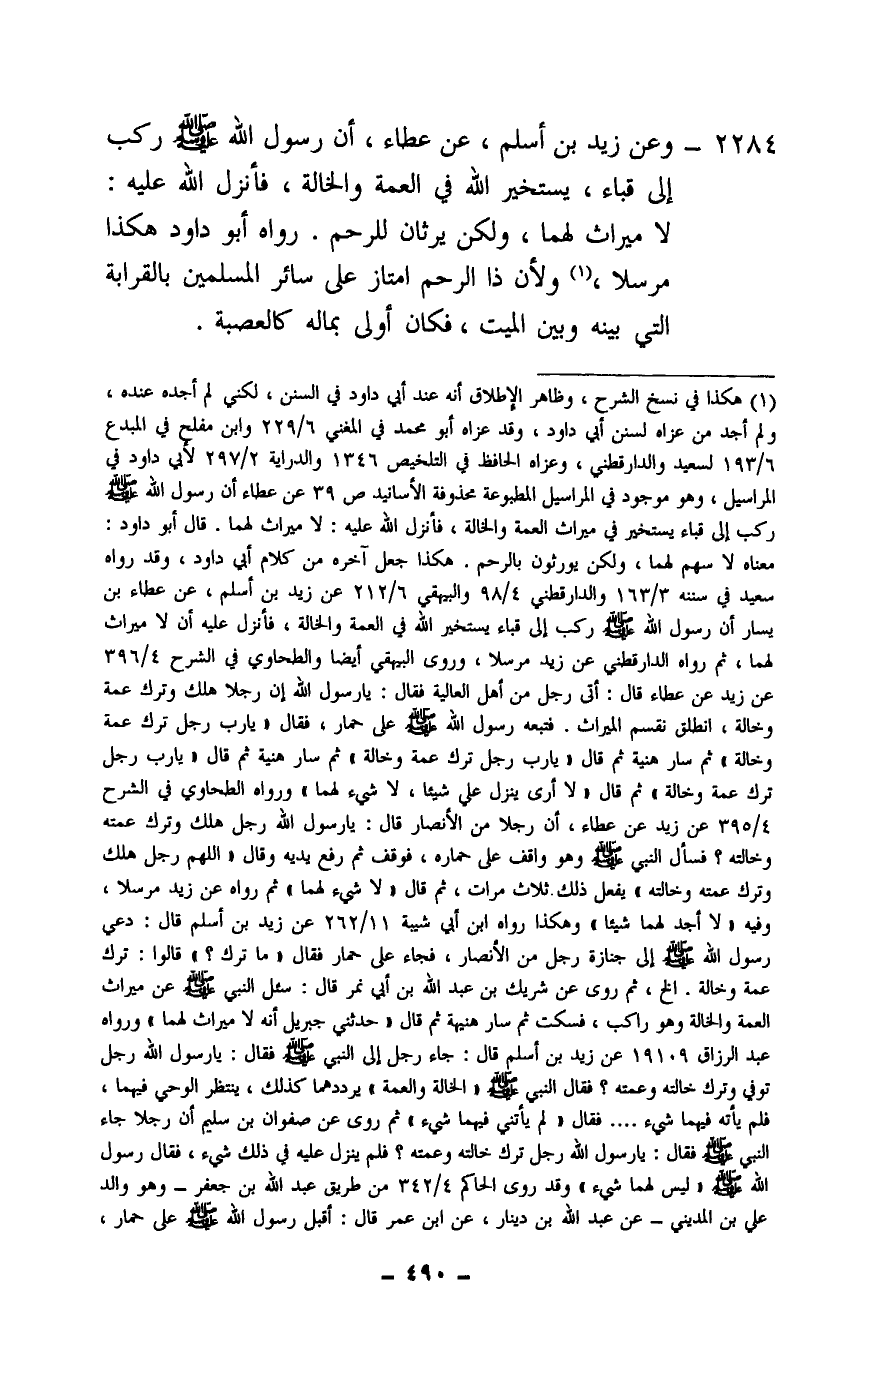 ٢٢٨٤ ــ وعن زيد بن أسلم ، عن عطاء ، أن رسول الله ﷺ ركب
إلى قباء ، يستخير الله في العمة والخالة ، فأنزل الله عليه :
لا ميراث لهما ، ولكن يرثان للرحم . رواه أبو داود هكذا
مرسلا ،(١) ولأن ذا الرحم امتاز على سائر المسلمين بالقرابة
التي بينه وبين الميت ، فكان أولى بماله كالعصبة .
(١) هكذا في نسخ الشرح ، وظاهر الإطلاق أنه عند أبي داود في السنن ، لكني لم أجده عنده ،
ولم أجد من عزاه لسنن أبي داود ، وقد عزاه أبو محمد في المغني ٢٢٩/٦ وابن مفلح في المبدع
١٩٣/٦ لسعيد والدارقطني ، وعزاه الحافظ في التلخيص ١٣٤٦ والدراية ٢٩٧/٢ لأبي داود في
المراسيل ، وهو موجود في المراسيل المطبوعة محذوفة الأسانيد ص ٣٩ عن عطاء أن رسول الله ﷺ
ركب إلى قباء يستخير في ميراث العمة والخالة ، فأنزل الله عليه : لا ميراث لهما . قال أبو داود :
معناه لا سهم لهما ، ولكن يورثون بالرحم . هكذا جعل آخره من كلام أبي داود ، وقد رواه
سعيد في سننه ١٦٣/٣ والدارقطني ٩٨/٤ والبيهقي ٢١٢/٦ عن زيد بن أسلم ، عن عطاء بن
يسار أن رسول الله ﷺ ركب إلى قباء يستخير الله في العمة والخالة ، فأنزل عليه أن لا ميراث
لهما ، ثم رواه الدارقطني عن زيد مرسلا ، وروى البيهقي أيضا والطحاوي في الشرح ٣٩٦/٤
عن زيد عن عطاء قال : أتى رجل من أهل العالية فقال : يارسول الله إن رجلا هلك وترك عمة
وخالة ، انطلق نقسم الميراث . فتبعه رسول الله ﷺ على حمار ، فقال « يارب رجل ترك عمة
وخالة » ثم سار هنية ثم قال « يارب رجل ترك عمة وخالة » ثم سار هنية ثم قال « يارب رجل
ترك عمة وخالة » ثم قال « لا أرى ينزل علي شيئا ، لا شيء لهما » ورواه الطحاوي في الشرح
٣٩٥/٤ عن زيد عن عطاء ، أن رجلا من الأنصار قال : يارسول الله رجل هلك وترك عمته
وخالته ؟ فسأل النبي ﷺ وهو واقف على حماره ، فوقف ثم رفع يديه وقال « اللهم رجل هلك
وترك عمته وخالته » يفعل ذلك ثلاث مرات ، ثم قال « لا شيء لهما » ثم رواه عن زيد مرسلا ،
وفيه « لا أجد لهما شيئا » وهكذا رواه ابن أبي شيبة ٢٦٢/١١ عن زيد بن أسلم قال : دعي
رسول الله ﷺ إلى جنازة رجل من الأنصار ، فجاء على حمار فقال « ما ترك ؟ » قالوا : ترك
عمة وخالة . الخ ، ثم روى عن شريك بن عبد الله بن أبي نمر قال : سئل النبي ﷺ عن ميراث
العمة والخالة وهو راكب ، فسكت ثم سار هنيهة ثم قال « حدثني جبريل أنه لا ميراث لهما » ورواه
عبد الرزاق ١٩١٠٩ عن زيد بن أسلم قال : جاء رجل إلى النبي ﷺ فقال : يارسول الله رجل
توفي وترك خالته وعمته ؟ فقال النبي ﷺ « الخالة والعمة » يرددهما كذلك ، ينتظر الوحي فيهما ،
فلم يأته فيهما شيء .... فقال « لم يأتني فيهما شيء » ثم روى عن صفوان بن سليم أن رجلا جاء
النبي ﷺ فقال : يارسول الله رجل ترك خالته وعمته ؟ فلم ينزل عليه في ذلك شيء ، فقال رسول
الله ﷺ « ليس لهما شيء » وقد روى الحاكم ٣٤٢/٤ من طريق عبد الله بن جعفر ــ وهو والد
علي بن المديني ــ عن عبد الله بن دينار ، عن ابن عمر قال : أقبل رسول الله ﷺ على حمار ،
ــ ٤٩٠ ــ